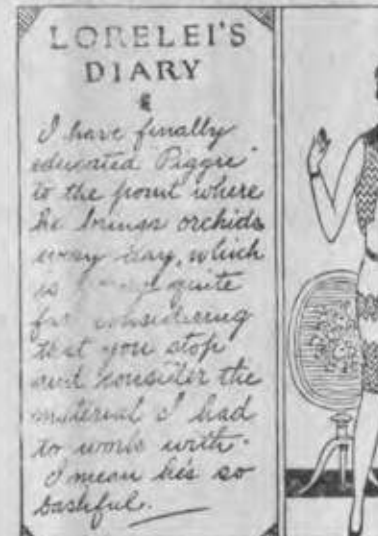 LORELEI'S
DIARY
I have finally
educated "Piggie"
to the point where
he brings orchids
every day, which
is quite
far considering
that you stop
and consider the
material I had
to work with.
I mean he's so
bashful.